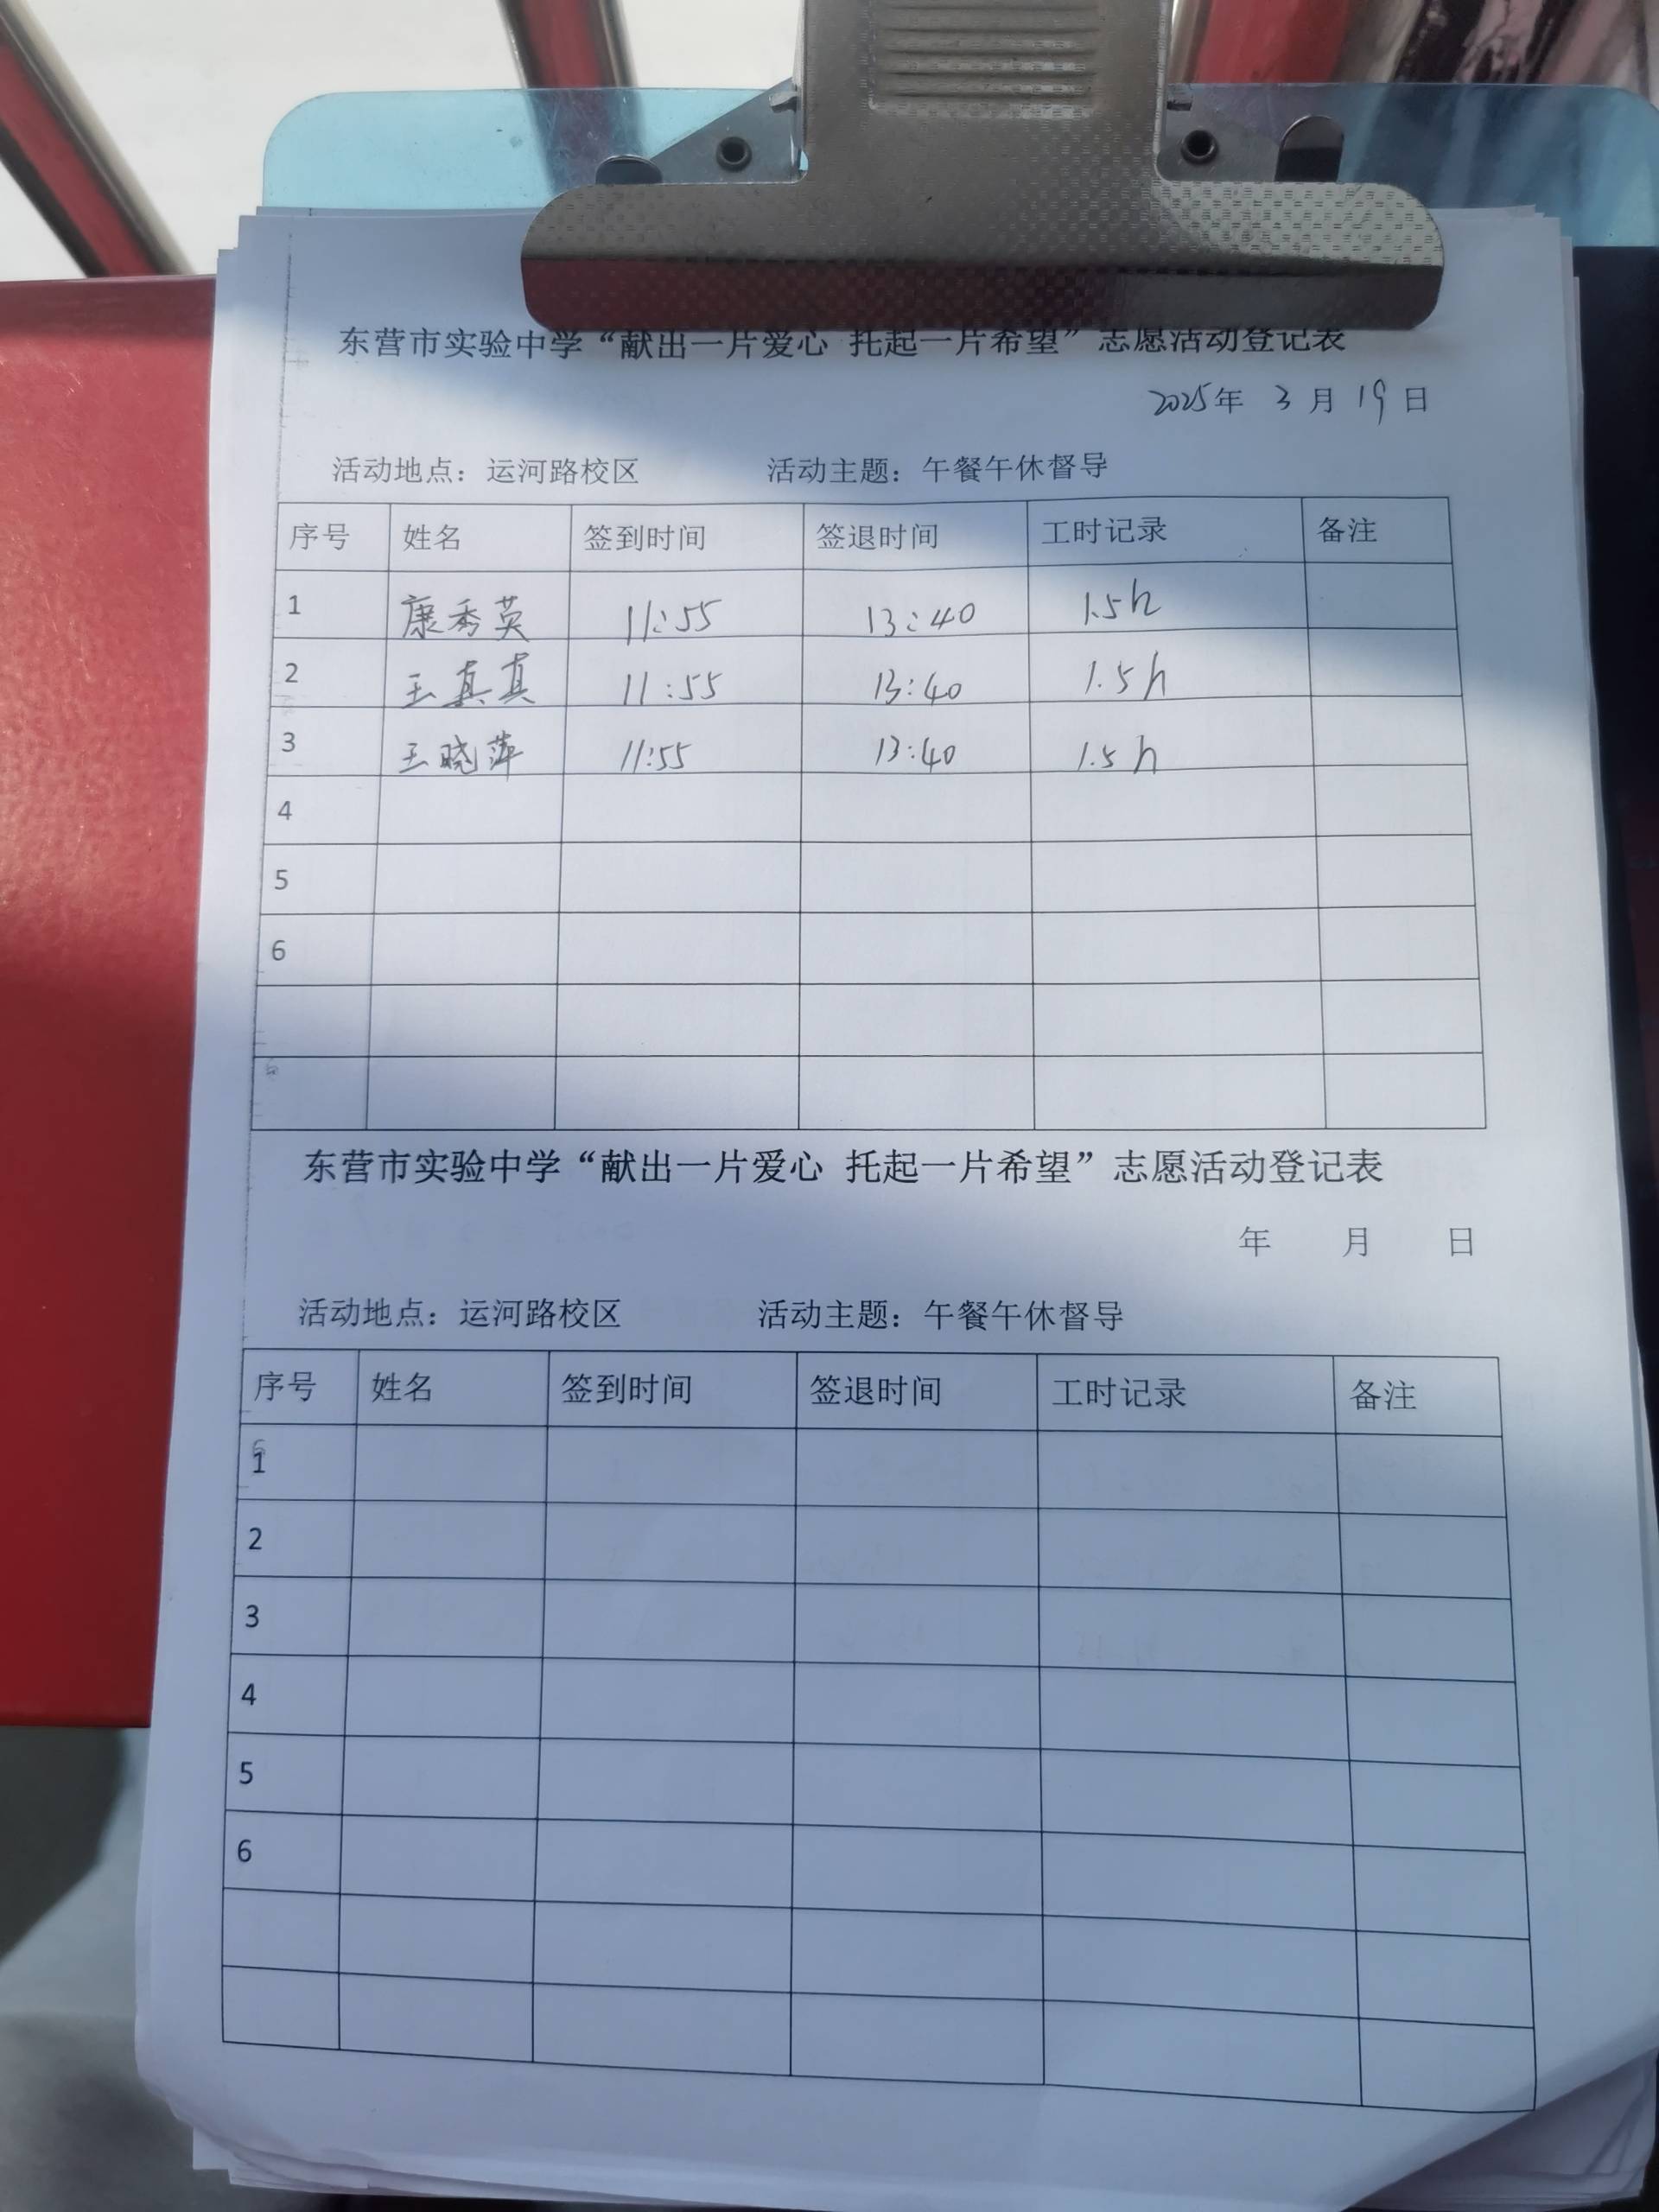 东营市实验中学“献出一片爱心 托起一片希望”志愿活动登记表
2025年 3 月 19 日
活动地点：运河路校区 活动主题：午餐午休督导
序号 姓名 签到时间 签退时间 工时记录 备注
1 康秀英 11:55 13:40 1.5h
2 王真真 11:55 13:40 1.5h
3 王晓萍 11:55 13:40 1.5h
4
5
6
东营市实验中学“献出一片爱心 托起一片希望”志愿活动登记表
年 月 日
活动地点：运河路校区 活动主题：午餐午休督导
序号 姓名 签到时间 签退时间 工时记录 备注
1
2
3
4
5
6